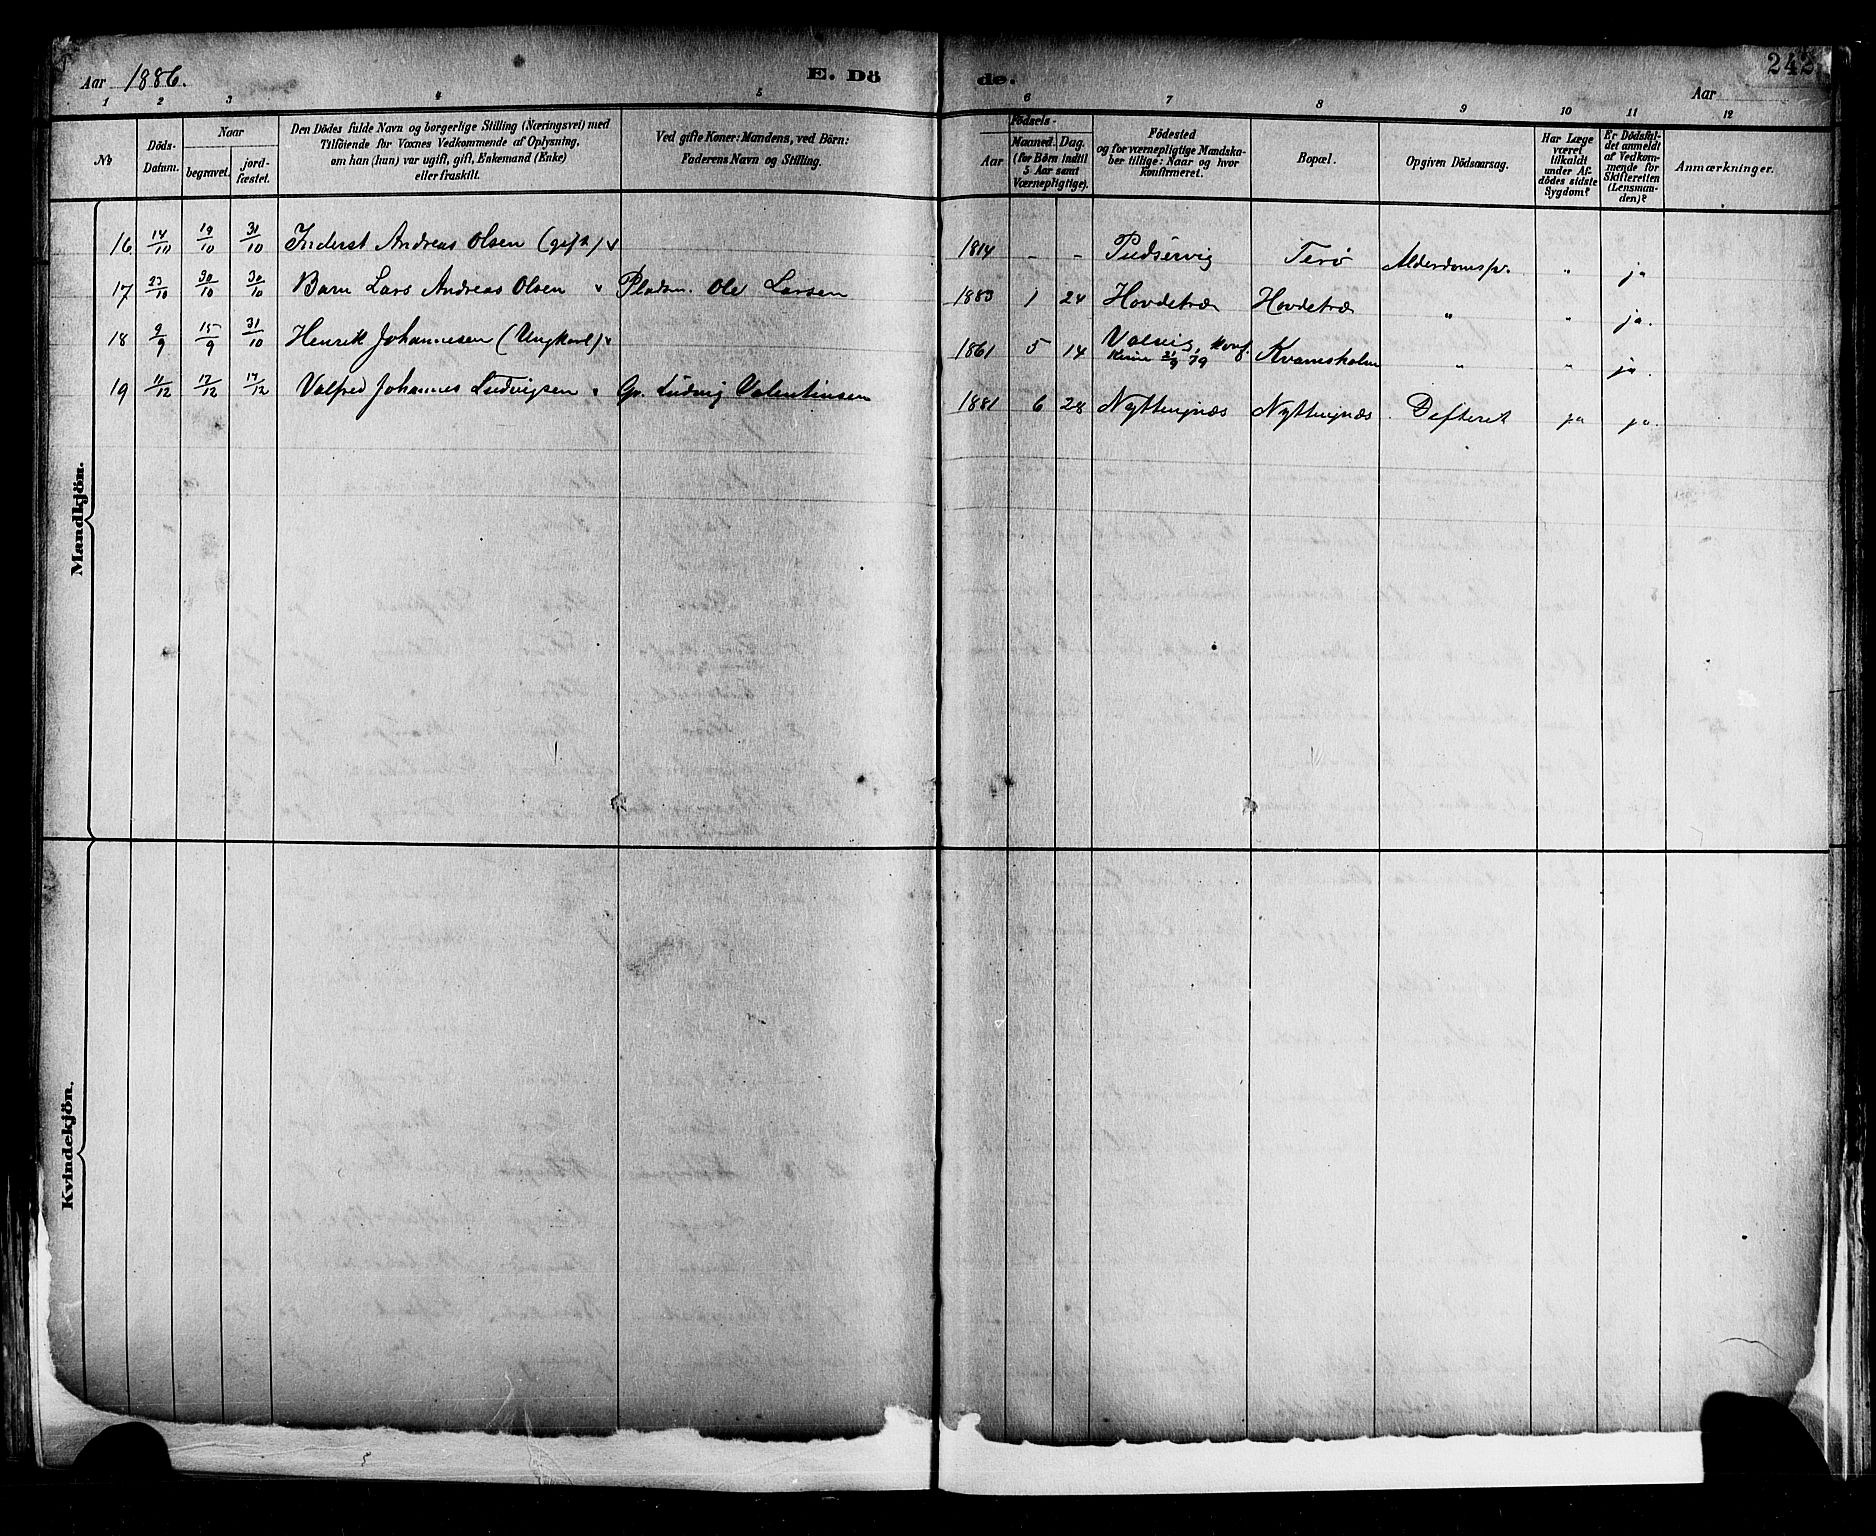 Aar 1886. E. Dö de. Aar 242
1 2 3 4 5 6 7 8 9 10 11 12
No
Döds-Datum.
Naar
begravet.
jord-fæstet.
Den Dödes fulde Navn og borgerlige Stilling (Næringsvei) med
Tilföiende for Voxnes Vedkommende af Oplysning,
om han (hun) var ugift, gift, Enkemand (Enke)
eller fraskilt.
Ved gifte Koner: Mandens, ved Börn:
Faderens Navn og Stilling.
Födsels-
Aar
Maaned. Dag.
(for Börn indtil
5 Aar samt
Værnepligtige).
Födested
og for værnepligtige Mandska-
ber tillige: Naar og hvor
konfirmeret.
Bopæl.
Opgiven Dödsaarsag.
Har Læge
været
tilkaldt
under Af-
dödes sidste
Sygdom?
Er Dödsfal-
det anmeldt
af Vedkom-
mende for
Skifteretten
(Lensman-
den)?
Anmærkninger.
Mandkjön.
16. 14/10 19/10 31/10 Inderst Andreas Olsen (gift) 1814 - - Pudservig Terö Alderdomssv. " ja
17 23/10 30/10 30/10 Barn Lars Andreas Olsen Pladsm. Ole Larsen 1883 1 24 Hovdetræ Hovdetræ " " ja.
18 9/9 15/9 31/10 Henrik Johannesen (Ungkarl) 1861 5 14 Valvig, Konf. Kvamsholm " " ja.
Kinn 21/9 79
19 11/12 17/12 17/12 Valfred Johannes Ludvigsen Gr. Ludvig Valentinsen 1881 6 28 Nyttingnæs Nyttingnæs Defteret ja ja.
Kvindekjön.